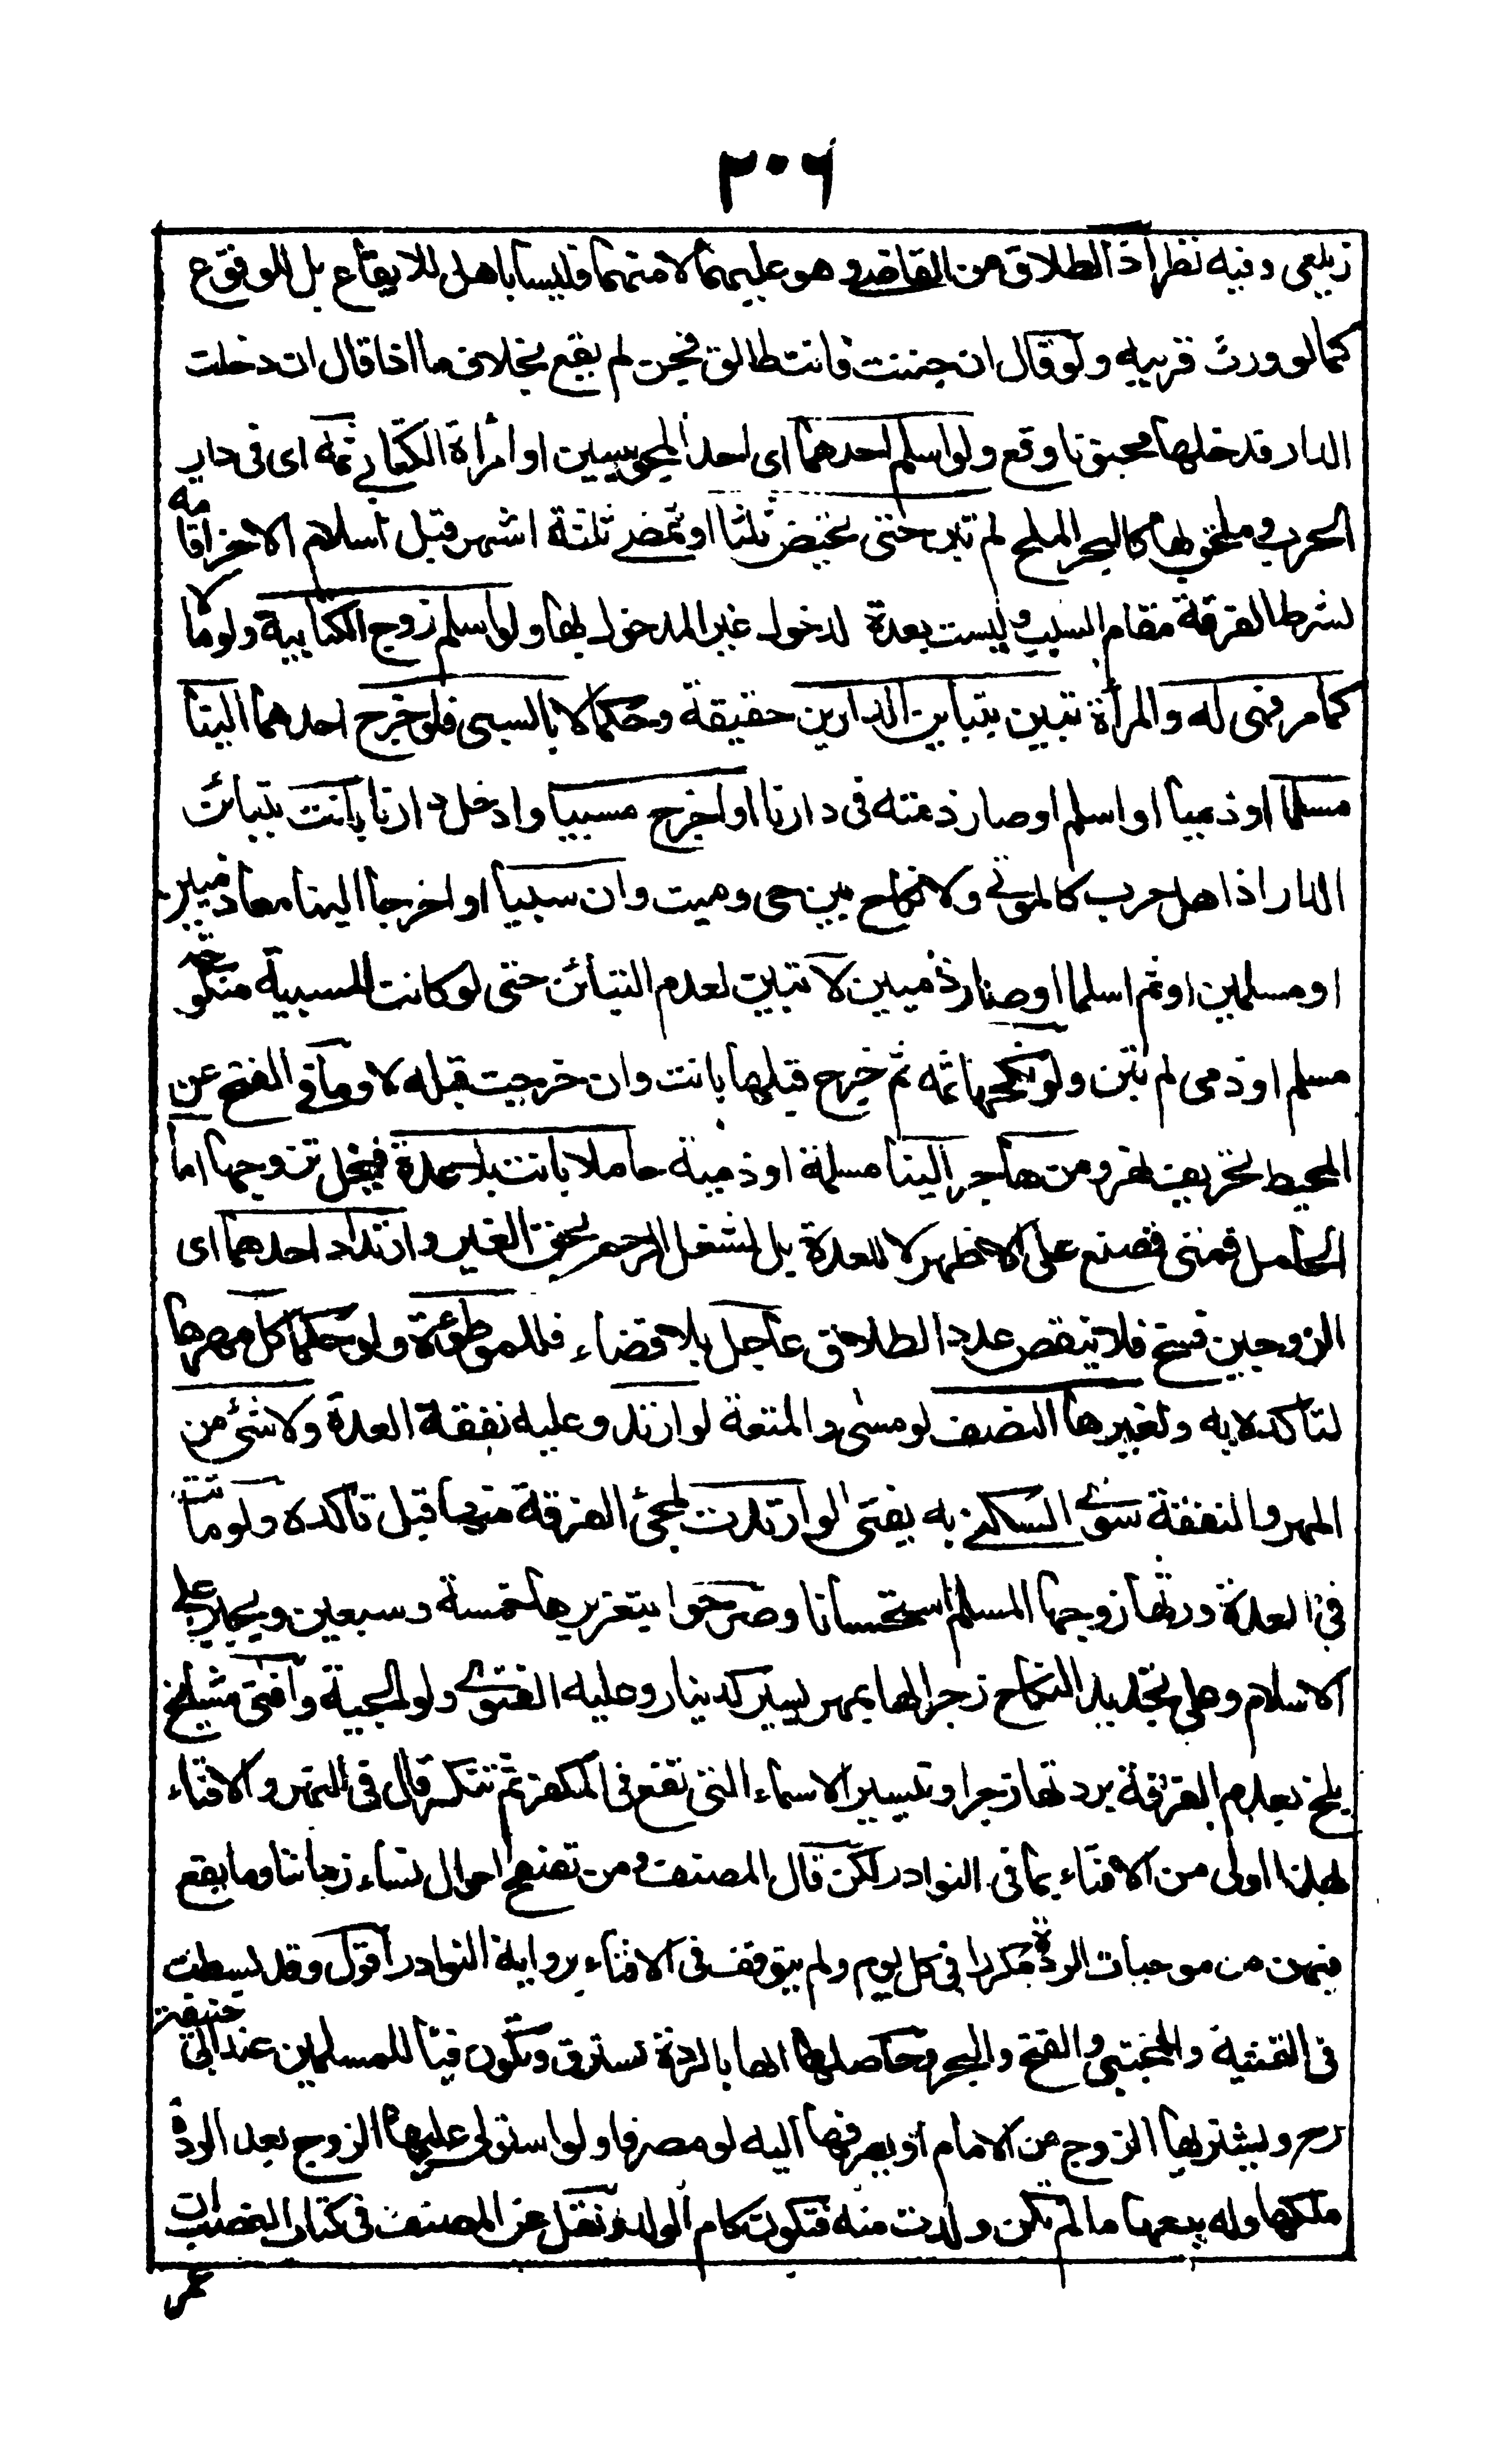 ٢٠٦
زيلعى وفيه نظر اذ الطلاق من القاضى وهو عليهما لا منهما فليسا باهل للايقاع بل للوقوع
كما لو ورث قريبه ولو قال ان جننت فانت طالق فجن لم يقع بخلاف ما اذا قال ان دخلت
الدار فدخلها مجنونا وقع ولو اسلم احدهما اى احد المجوسيين او امرأة الكتابى ثمه اى فى دار
الحرب وملحق بها كالبحر الملح لم تبن حتى تحيض ثلثا او تمضى ثلثة اشهر قبل اسلام الاخر اقامه
لشرط الفرقة مقام السبب وليست بعدة لدخول غير المدخول بها ولو اسلم زوج الكتابية ولو مآلا
كما مر فهى له والمرأة تبين بتباين الدارين حقيقة وحكما لا بالسبى فلو خرج احدهما الينا
مسلما او ذميا او اسلم او صار ذمته فى دارنا او اخرج مسبيا وادخل دارنا بانت بتبائن
الدار اذ اهل حرب كالموتى ولا نكاح بين حى وميت وان سبيا او اخرجا الينا معا ذميين
او مسلمين او ثم اسلما او صارا ذميين لا تبين لعدم التبائن حتى لو كانت المسبية منكوحة
مسلم او ذمى لم تبن ولو نكحها ثمه ثم خرج قبلها بانت وان خرجت قبله لا وما فى الفتح عن
المحيط تحريف نهر ومن هاجر الينا مسلمة او ذمية حاملا بانت بلا عدة فيحل تزوجها اما
الحامل فمتى فصنع على الاظهر لا للعدة بل لشغل الرحم بحق الغير وارتداد احدهما اى
الزوجين فسخ فلا ينقص عدد الطلاق عاجل بلا قضاء فللموطؤة ولو حكما كل مهرها
لتاكده به ولغيرها النصف لو مسمى والمتعة لو ارتد وعليه نفقة العدة ولا شئ من
المهر والنفقة سوى السكنى به يفتى لو ارتدت لمجئ الفرقة منها قبل تاكده ولو ماتت
فى العدة ورثها زوجها المسلم استحسانا وصرحوا بتعزيرها خمسة وسبعين ويجبر على
الاسلام وعلى تجديد النكاح زجرا لها بمهر يسير كدينار وعليه الفتوى ولوالجية وافتى مشايخ
بلخ بعدم الفرقة بردتها زجرا وتيسيرا لا سماء التى تقع فى المكفر ثم تنكر قال فى النهر والافتاء
بهذا اولى من الافتاء بما فى النوادر لكن قال المصنف ومن تصفح احوال نساء زماننا وما يقع
منهن من موجبات الردة مكررا فى كل يوم ولم يتوقف فى الافتاء برواية النوادر اقول وقد بسطت
فى القنية والمجتبى والفتح والبحر وحاصلها انها بالردة تسترق وتكون فيئا للمسلمين عند ابى حنيفة
رح ويشتريها الزوج من الامام او يصرفها اليه لو مصرفا ولو استولى عليها الزوج بعد الردة
ملكها وله بيعها ما لم تكن ولدت منه فتكون كام الولد ونقل عن المصنف فى كتاب الغصب ان
عمر